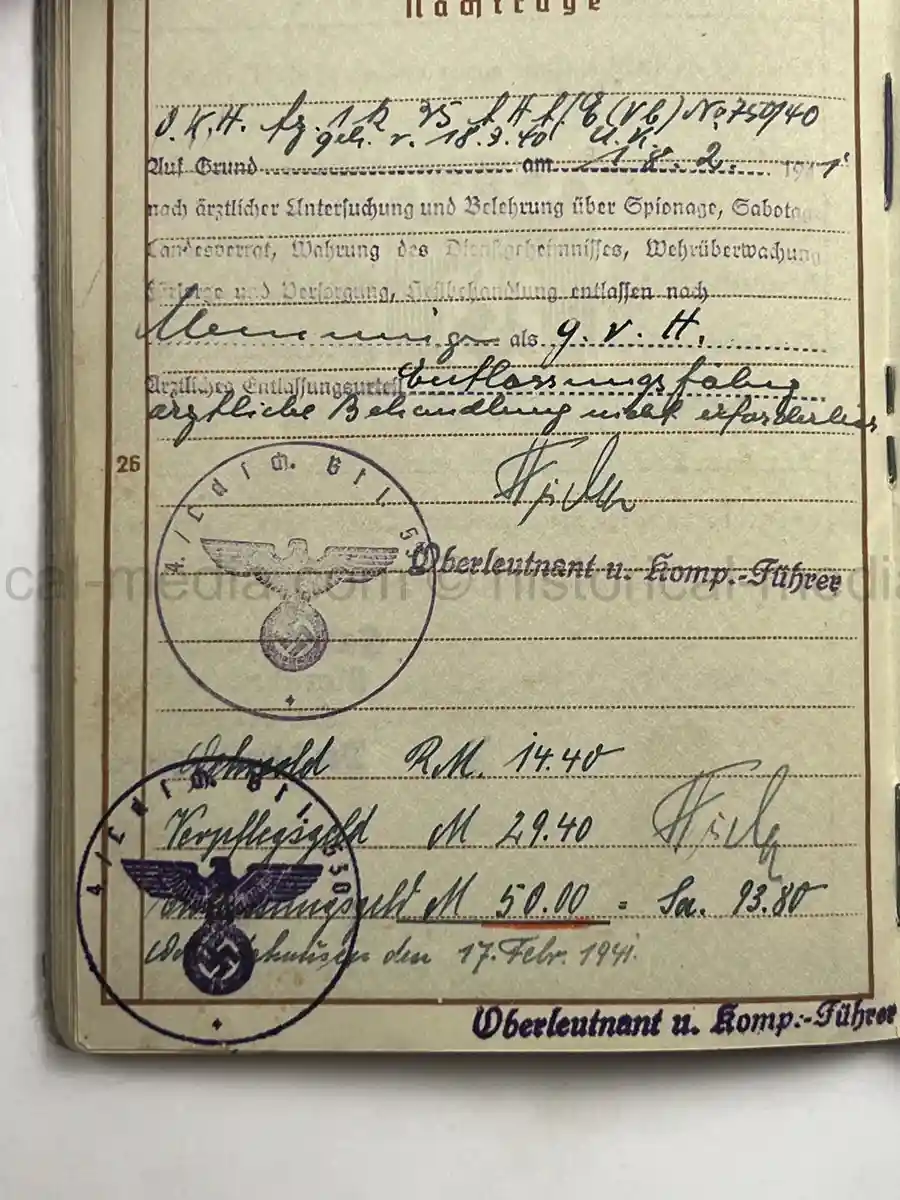 Nachträge
O.K.H. Az. 1 k 35 A H A/E (Vb) No 750/40
geh. v. 18.9.40 U.K.
Auf Grund am 18. 2. 1941
nach ärztlicher Untersuchung und Belehrung über Spionage, Sabotage
Landesverrat, Wahrung des Dienstgeheimnisses, Wehrüberwachung
Fürsorge und Versorgung, Heilbehandlung entlassen nach
als g. v. H.
Ärztliches Entlassungsurteil Entlassungsfähig
ärztliche Behandlung nicht erforderlich
26
Oberleutnant u. Komp.-Führer
cal-media.com © historical-media
Wehrsold RM. 14.40
Verpflegsgeld M 29.40
M 50.00 = Sa. 93.80
den 17. Febr. 1941.
Oberleutnant u. Komp.-Führer